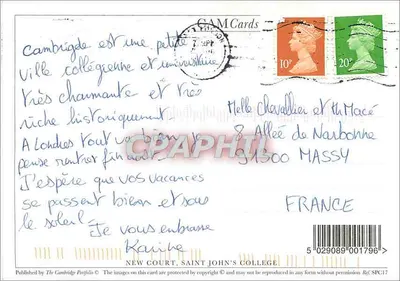 CAMCards
Cambrigde est une petite
ville collégienne et universitaire
très charmante et très
riche historiquement.
A Londres tout va bien, je
pense rentrer fin août.
J'espère que vos vacances
se passent bien et sous
le soleil.
Je vous embrasse
Karine
10P
20P
Melle Chevallier et Mr Macé
8 Allée de Narbonne
91300 MASSY
FRANCE
CPAPHIL
NEW COURT, SAINT JOHN'S COLLEGE
5 029089 001796 >
Published by The Cambridge Portfolio © The images on this card are protected by copyright © and may not be reproduced without permission. Ref. SPC17